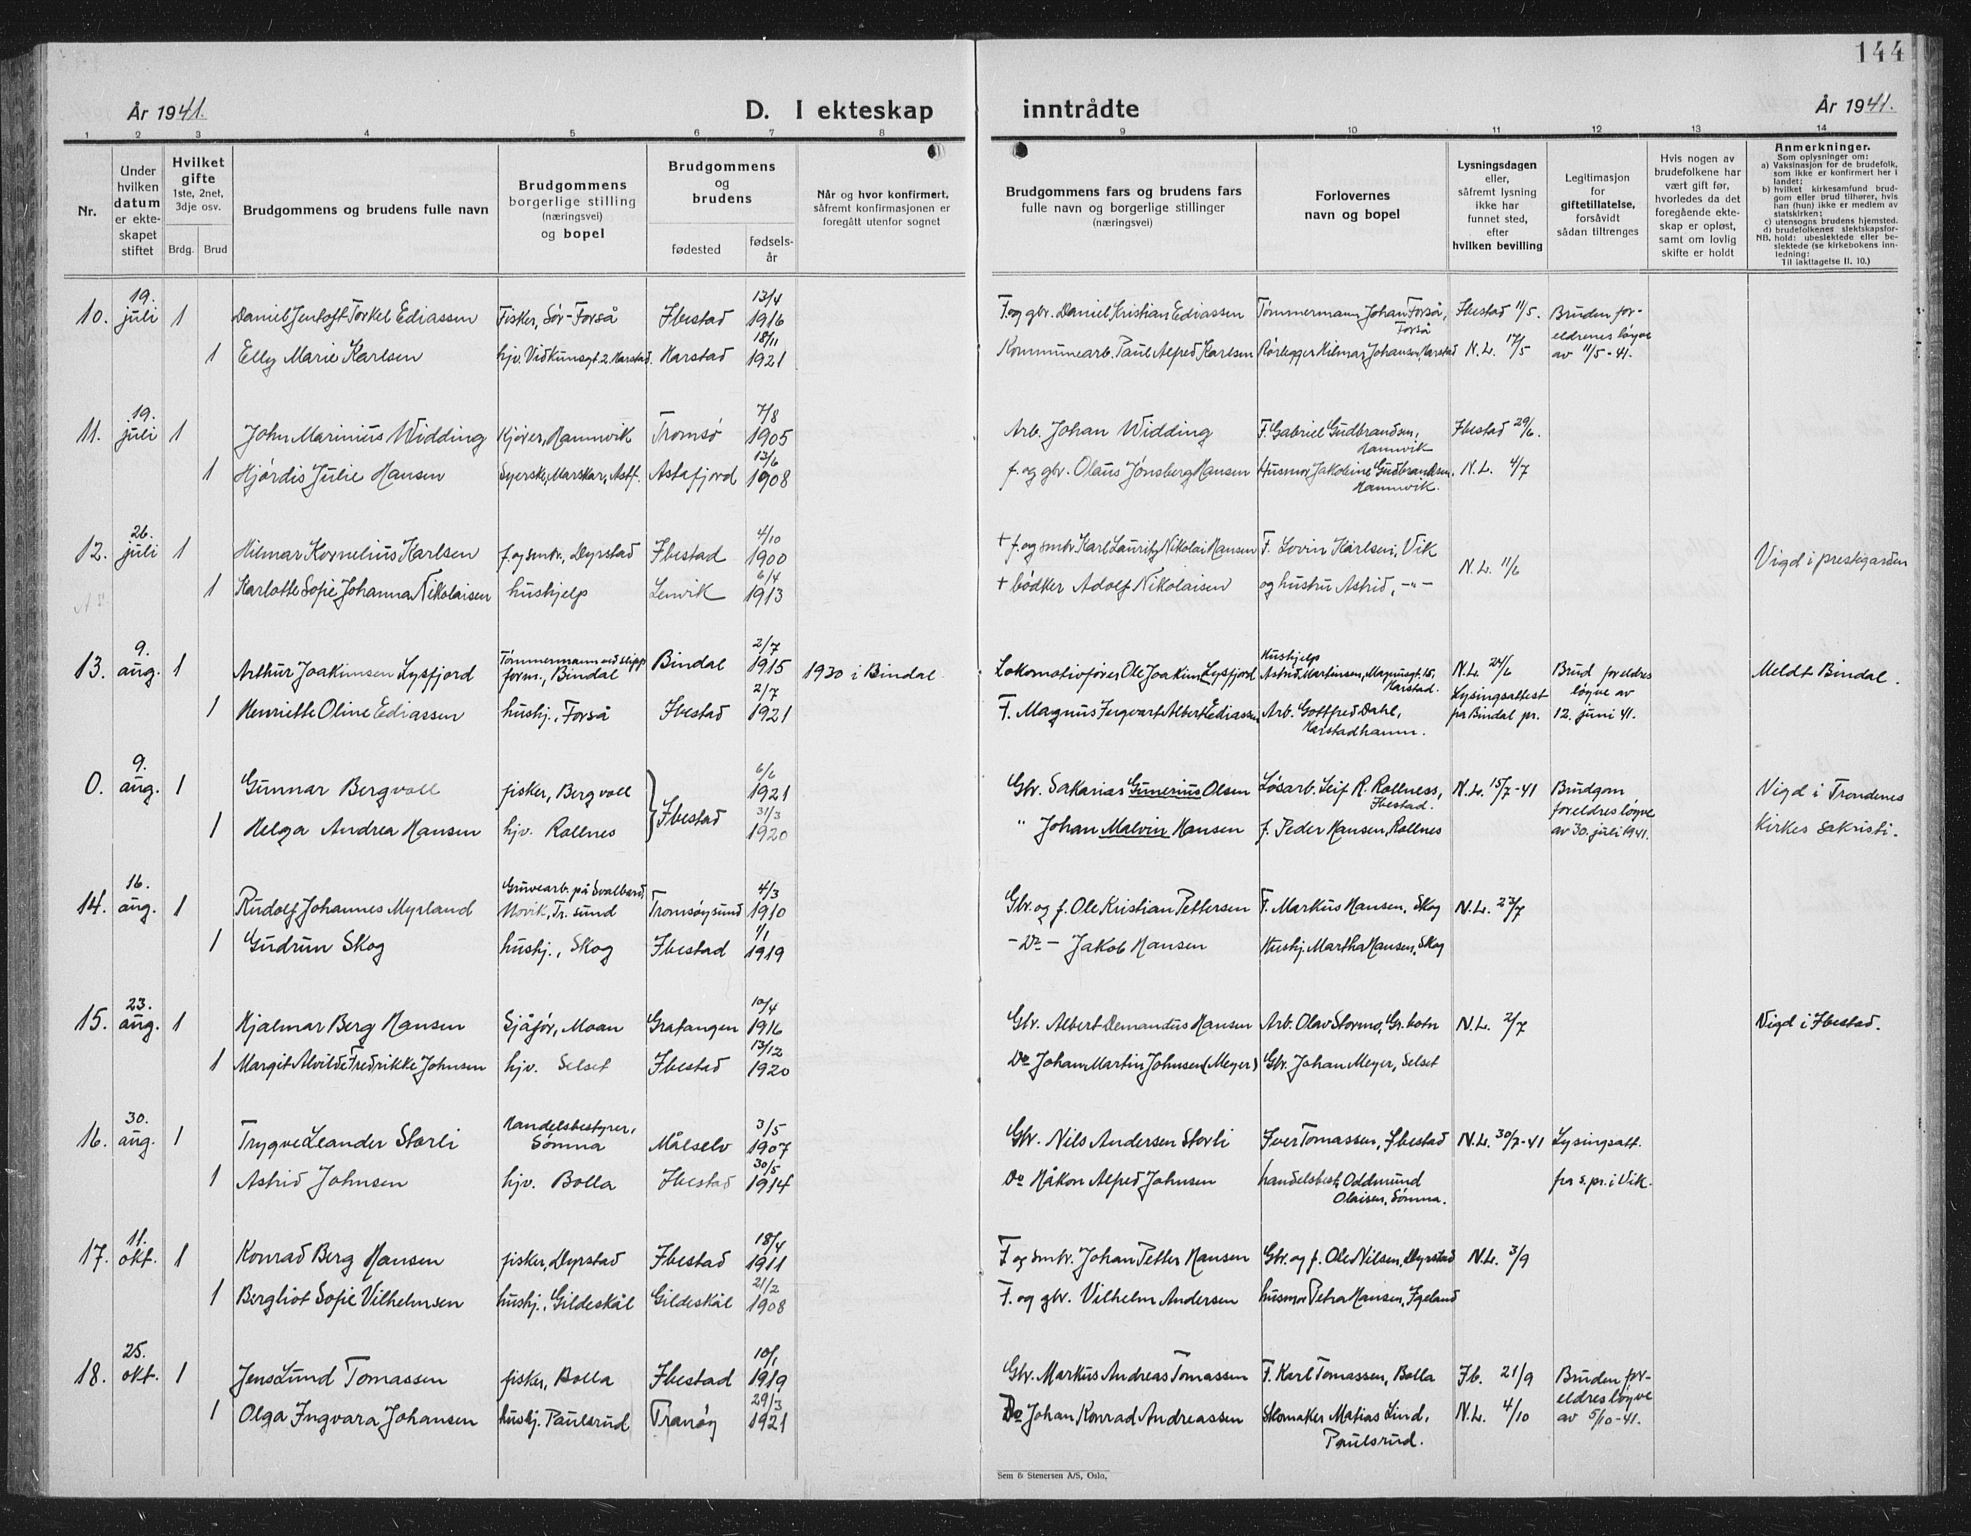 144
År 1941.
D. I ekteskap inntrådte
År 1941.
1 2 3 4 5 6 7 8 9 10 11 12 13 14
Nr.
Under hvilken datum er ekteskapet stiftet
Hvilket gifte 1ste, 2net, 3dje osv.
Brdg. Brud
Brudgommens og brudens fulle navn
Brudgommens borgerlige stilling (næringsvei) og bopel
Brudgommens og brudens
fødested
fødselsår
Når og hvor konfirmert, såfremt konfirmasjonen er foregått utenfor sognet
Brudgommens fars og brudens fars fulle navn og borgerlige stillinger (næringsvei)
Forlovernes navn og bopel
Lysningsdagen eller, såfremt lysning ikke har funnet sted, efter hvilken bevilling
Legitimasjon for giftetillatelse, forsåvidt sådan tiltrenges
Hvis nogen av brudefolkene har vært gift før, hvorledes da det foregående ekteskap er opløst, samt om lovlig skifte er holdt
Anmerkninger.
Som oplysninger om:
a) Vaksinasjon for de brudefolk, som ikke er konfirmert her i landet;
b) hvilket kirkesamfund brudgom eller brud tilhører, hvis han (hun) ikke er medlem av statskirken;
c) utensogns brudens hjemsted.
d) brudefolkenes slektskapsforhold: ubeslektede eller beslektede (se kirkebokens innledning:
NB.
Til iakttagelse II. 10.)
10. 19. juli 1 Daniel Jentoft Torkel Ediassen Fisker, Sør-Forså Ibestad 13/4 1916 F. og gbr. Daniel Kristian Ediassen Tømmermann Johan Forså, Forså Ibestad 11/5. Bruden foreldrenes løyve av 11/5-41.
1 Elly Marie Karlsen hjv. Vidkunsgt. 2 Harstad. Harstad 18/11 1921 Kommunearb. Paul Alfred Karlsen Rørlegger Hilmar Johansen, Harstad N.L. 17/5
11. 19. juli 1 John Marinius Widding Kjører, Hamnvik Tromsø 7/8 1905 Arb. Johan Widding F. Gabriel Gudbrandsen, Hamnvik Ibestad 29/6.
1 Hjørdis Julie Hansen Syerske, Marskar, Astf. Astafjord 13/6 1908 f. og gbr. Olaus Jønsberg Hansen Husmor Jakobine Gudbrandsen, Hamnvik. N.L. 4/7
12. 26. juli 1 Hilmar Kornelius Karlsen f. og smbr., Dyrstad Ibestad 4/10 1900 + f. og smbr. Karl Lauritz Nikolai Hansen F. Lovin Karlsen, Vik N.L. 11/6 Vigd i prestegarden
1 Karlotte Sofie Johanna Nikolaisen hushjelp Lenvik 6/4 1913 + bødker Adolf Nikolaisen og hustru Astrid, -"-
13. 9. aug. 1 Arthur Joakimsen Lysfjord Tømmermann ved slipp form., Bindal Bindal 2/7 1915 1930 i Bindal Lokomotivfører Ole Joakim Lysfjord Hushjelp Astrid Martinsen, Magnusgt. 15, Harstad. N.L. 24/6 Lysingsattest fra Bindal pr. Brud foreldres løyve av 12. juni 41. Meldt Bindal.
1 Henriette Oline Ediassen hushj., Forså Ibestad 2/7 1921 F. Magnus Ingvart Albert Ediassen Arb. Gottfred Dahl, Harstadhamn.
0. 9. aug. 1 Gunnar Bergvoll fisker, Bergvoll Ibestad 6/6 1921 Gbr. Sakarias Gunerius Olsen Løsarb. Leif R. Rollness, Ibestad. N.L. 15/7-41 Brudgom foreldres løyve av 30. juli 1941. Vigd i Trondenes kirkes sakristi.
1 Helga Andrea Hansen hjv. Rollnes 31/3 1920 " Johan Malvin Hansen f. Peder Hansen, Rollnes
14. 16. aug. 1 Rudolf Johannes Myrland Gruvearb. på Svalbard, Movik, Tr.sund Tromsøysund 4/3 1910 Gbr. og f. Ole Kristian Pettersen F. Markus Hansen, Skog N.L. 23/7
1 Gudrun Skog hushj., Skog Ibestad 1/1 1919 - Do - Jakob Hansen Hushj. Martha Hansen, Skog
15. 23. aug. 1 Hjalmar Berg Hansen Sjåfør, Moan Gratangen 10/4 1916 Gbr. Albert Demandus Hansen Arb. Olav Stormo, Gr.botn N.L. 2/7 Vigd i Ibestad.
1 Margit Alvilde Fredrikke Johnsen hjv. Selset Ibestad 13/12 1920 Do Johan Martin Johnsen (Meyer) Gbr. Johan Meyer, Selset
16. 30. aug. 1 Trygve Leander Storli Handelsbestyrer, Sømna Målselv 3/5 1907 Gbr. Nils Andersen Storli Iver Tomassen, Ibestad N.L. 30/7-41 Lysingsatt. fra s.pr. i Vik.
1 Astrid Johnsen hjv. Bolla Ibestad 30/5 1914 Do Håkon Alfred Johnsen handelsbest. Oddmund Olaisen, Sømna.
17. 11. okt. 1 Konrad Berg Hansen fisker, Dyrstad Ibestad 18/4 1911 F. og smbr. Johan Petter Hansen Gbr. og f. Ole Nilsen, Dyrstad N.L. 3/9
1 Bergliot Sofie Vilhelmsen hushj., Gildeskål Gildeskål 21/2 1908 F. og gbr. Vilhelm Andersen husmor Petra Hansen, Igeland
18. 25. okt. 1 Jens Lund Tomassen fisker, Bolla Ibestad 10/1 1919 Gbr. Markus Andreas Tomassen F. Karl Tomassen, Bolla Ib. 21/9 Bruden foreldres løyve av 5/10-41.
1 Olga Ingvara Johansen hushj. Paulsrud Tranøy 29/3 1921 Do Johan Konrad Andreassen Skomaker Matias Lind, Paulsrud. N.L. 4/10
Sem & Stenersen A/S, Oslo.